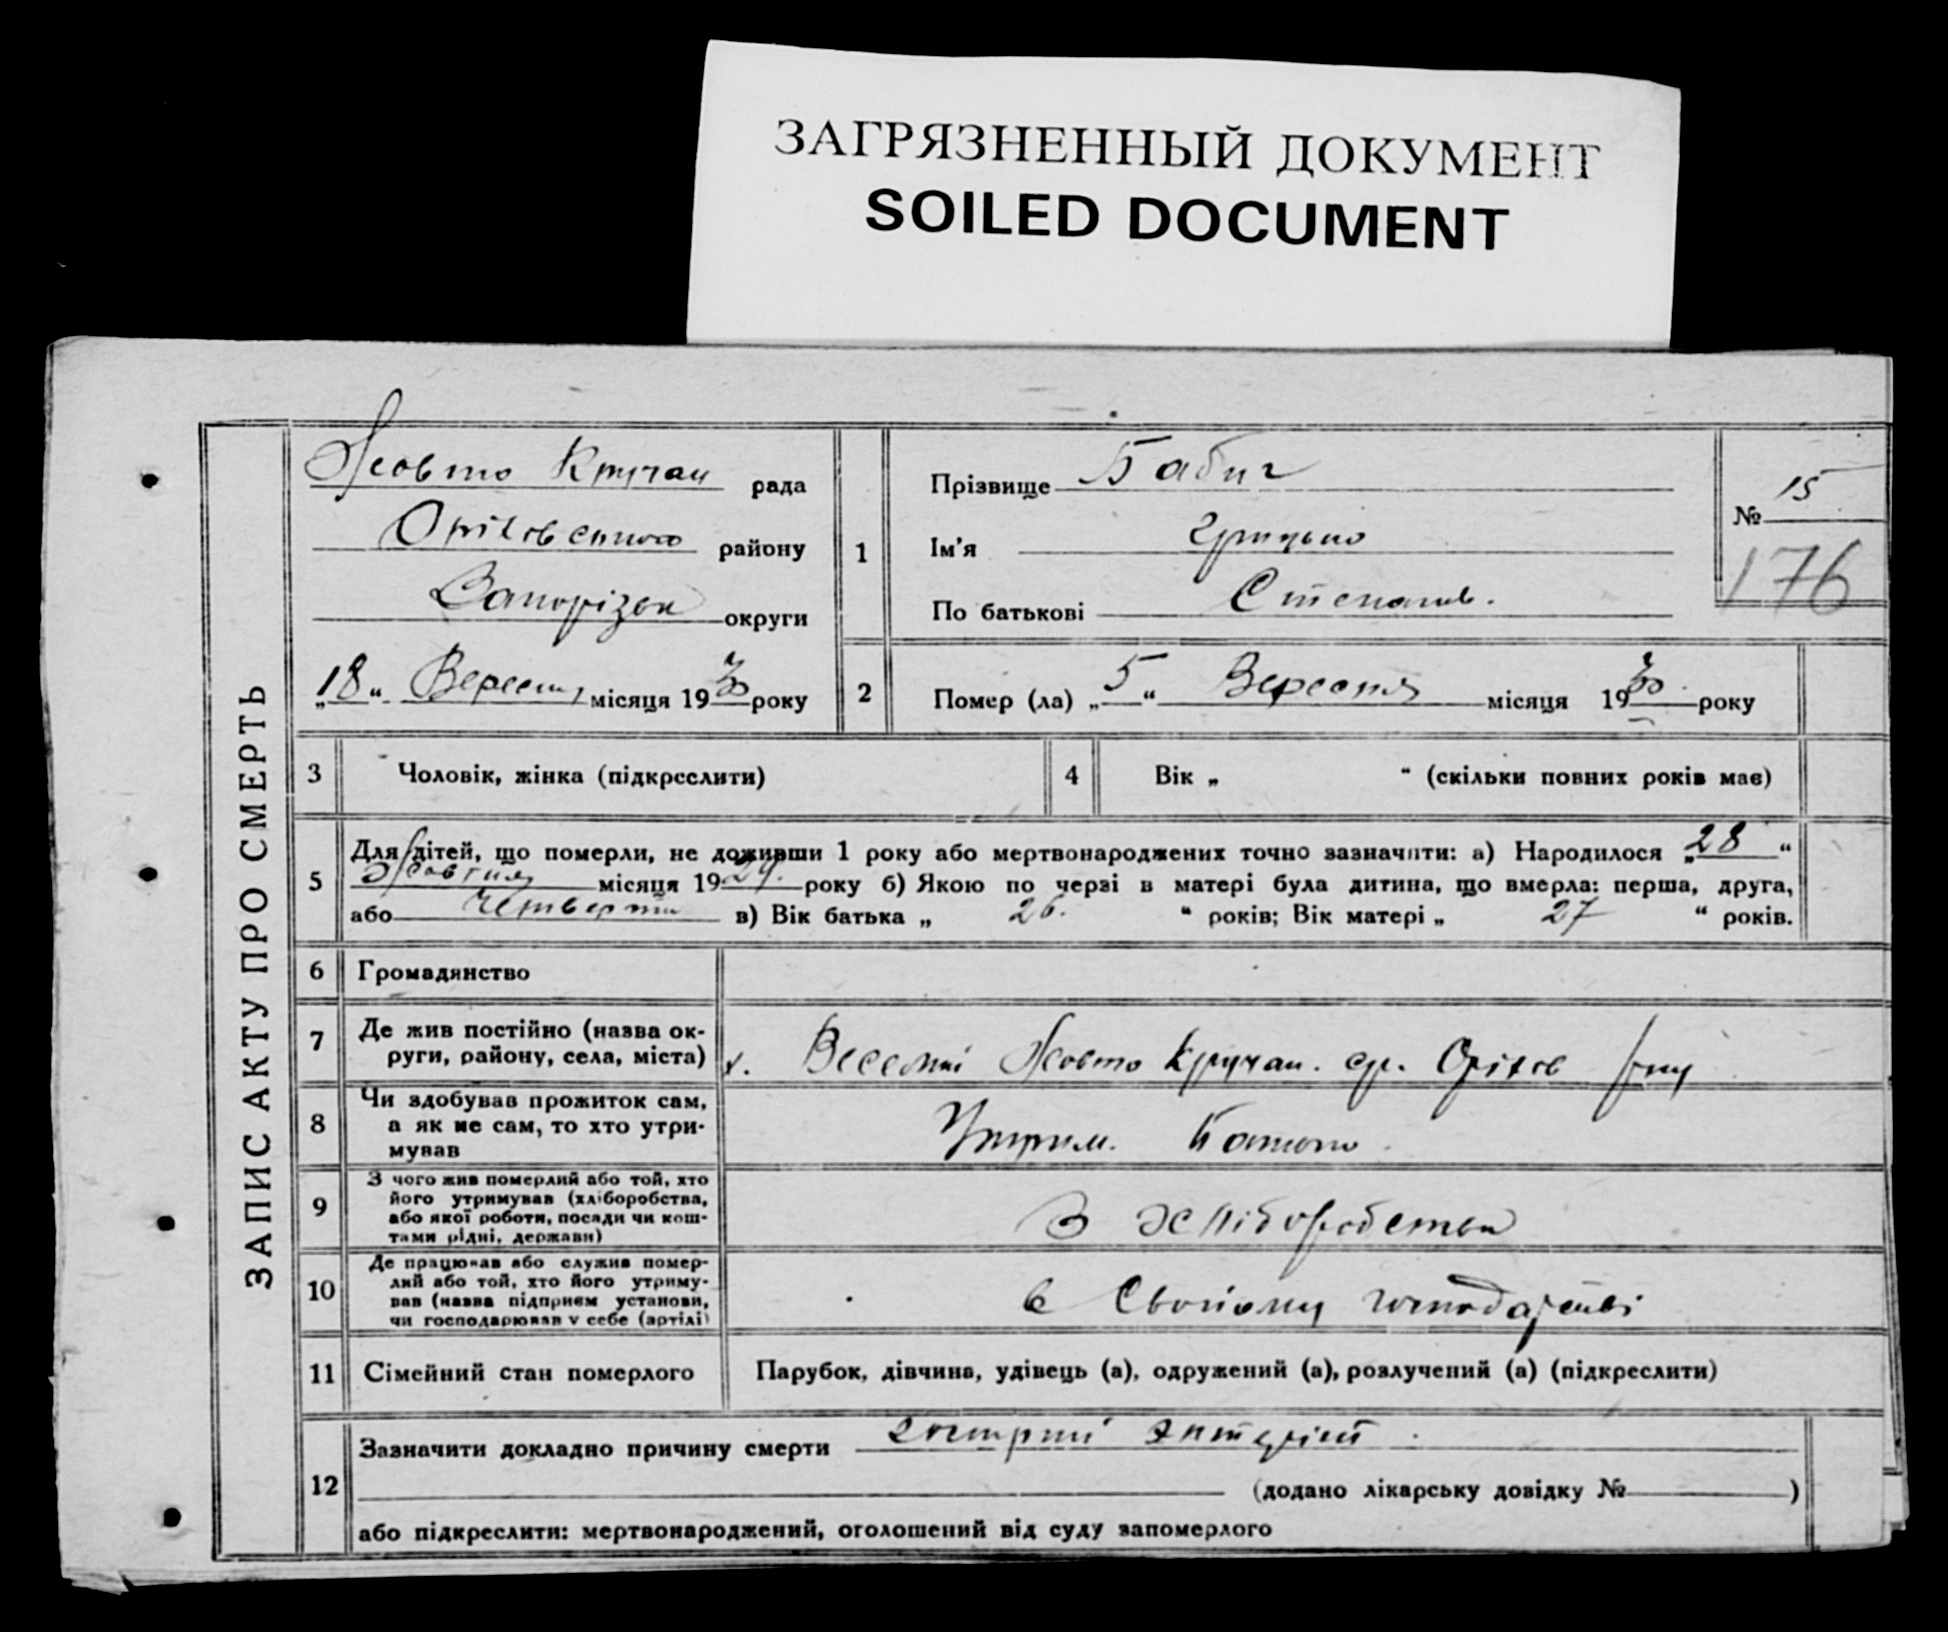 ЗАГРЯЗНЕННЫЙ ДОКУМЕНТ
SOILED DOCUMENT
ЗАПИС АКТУ ПРО СМЕРТЬ
Жовто Кручан рада
Оріховського району
Запорізьк округи
„18“ Вересня місяця 1930 року
1
Прізвище Бабич
Ім'я Грицько
По батькові Степанов.
№ 15
176
2
Помер (ла) „5“ Вересня місяця 1930 року
3 Чоловік, жінка (підкреслити)
4 Вік „ “ (скільки повних років має)
5 Для дітей, що померли, не доживши 1 року або мертвонароджених точно зазначити: а) Народилося „28“
Жовтня місяця 1929. року б) Якою по черзі в матері була дитина, що вмерла: перша, друга,
або четверта в) Вік батька „ 26. “ років; Вік матері „ 27 “ років.
6 Громадянство
7 Де жив постійно (назва ок-
руги, району, села, міста)
х. Веселий Жовто Кручан. ср. Оріхов р-ну
8 Чи здобував прожиток сам,
а як не сам, то хто утри-
мував
Утрим. Батько
9 З чого жив померлий або той, хто
його утримував (хліборобства,
або якої роботи, посади чи кош-
тами рідні, держави)
З хліборобства
10 Де працював або служив помер-
лий або той, хто його утриму-
вав (назва підприєм установи,
чи господарював у себе (артілі)
в свойому господарстві
11 Сімейний стан померлого
Парубок, дівчина, удівець (а), одружений (а), розлучений (а) (підкреслити)
12 Зазначити докладно причину смерти гострий ентеріт
(додано лікарську довідку № )
або підкреслити: мертвонароджений, оголошений від суду запомерлого